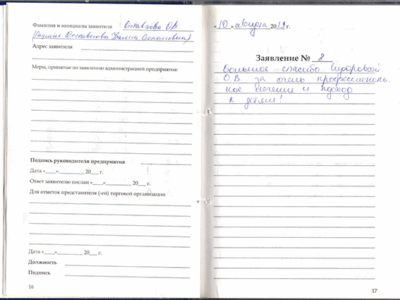 Фамилия и инициалы заявителя
Адрес заявителя
Меры, принятые по заявлению администрацией предприятия
Подпись руководителя предприятия
Дата «___»__________ 20___ г.
Ответ заявителю послан «___»__________ 20___ г.
Для отметок представителя (-ей) торговой организации
Дата «___»__________ 20___ г.
Должность
Подпись
16
«10» августа 2019 г.
Заявление № 8
Большое спасибо Сидоровой
О.В. за очень профессиональ
ное лечение и подход
к детям!
17